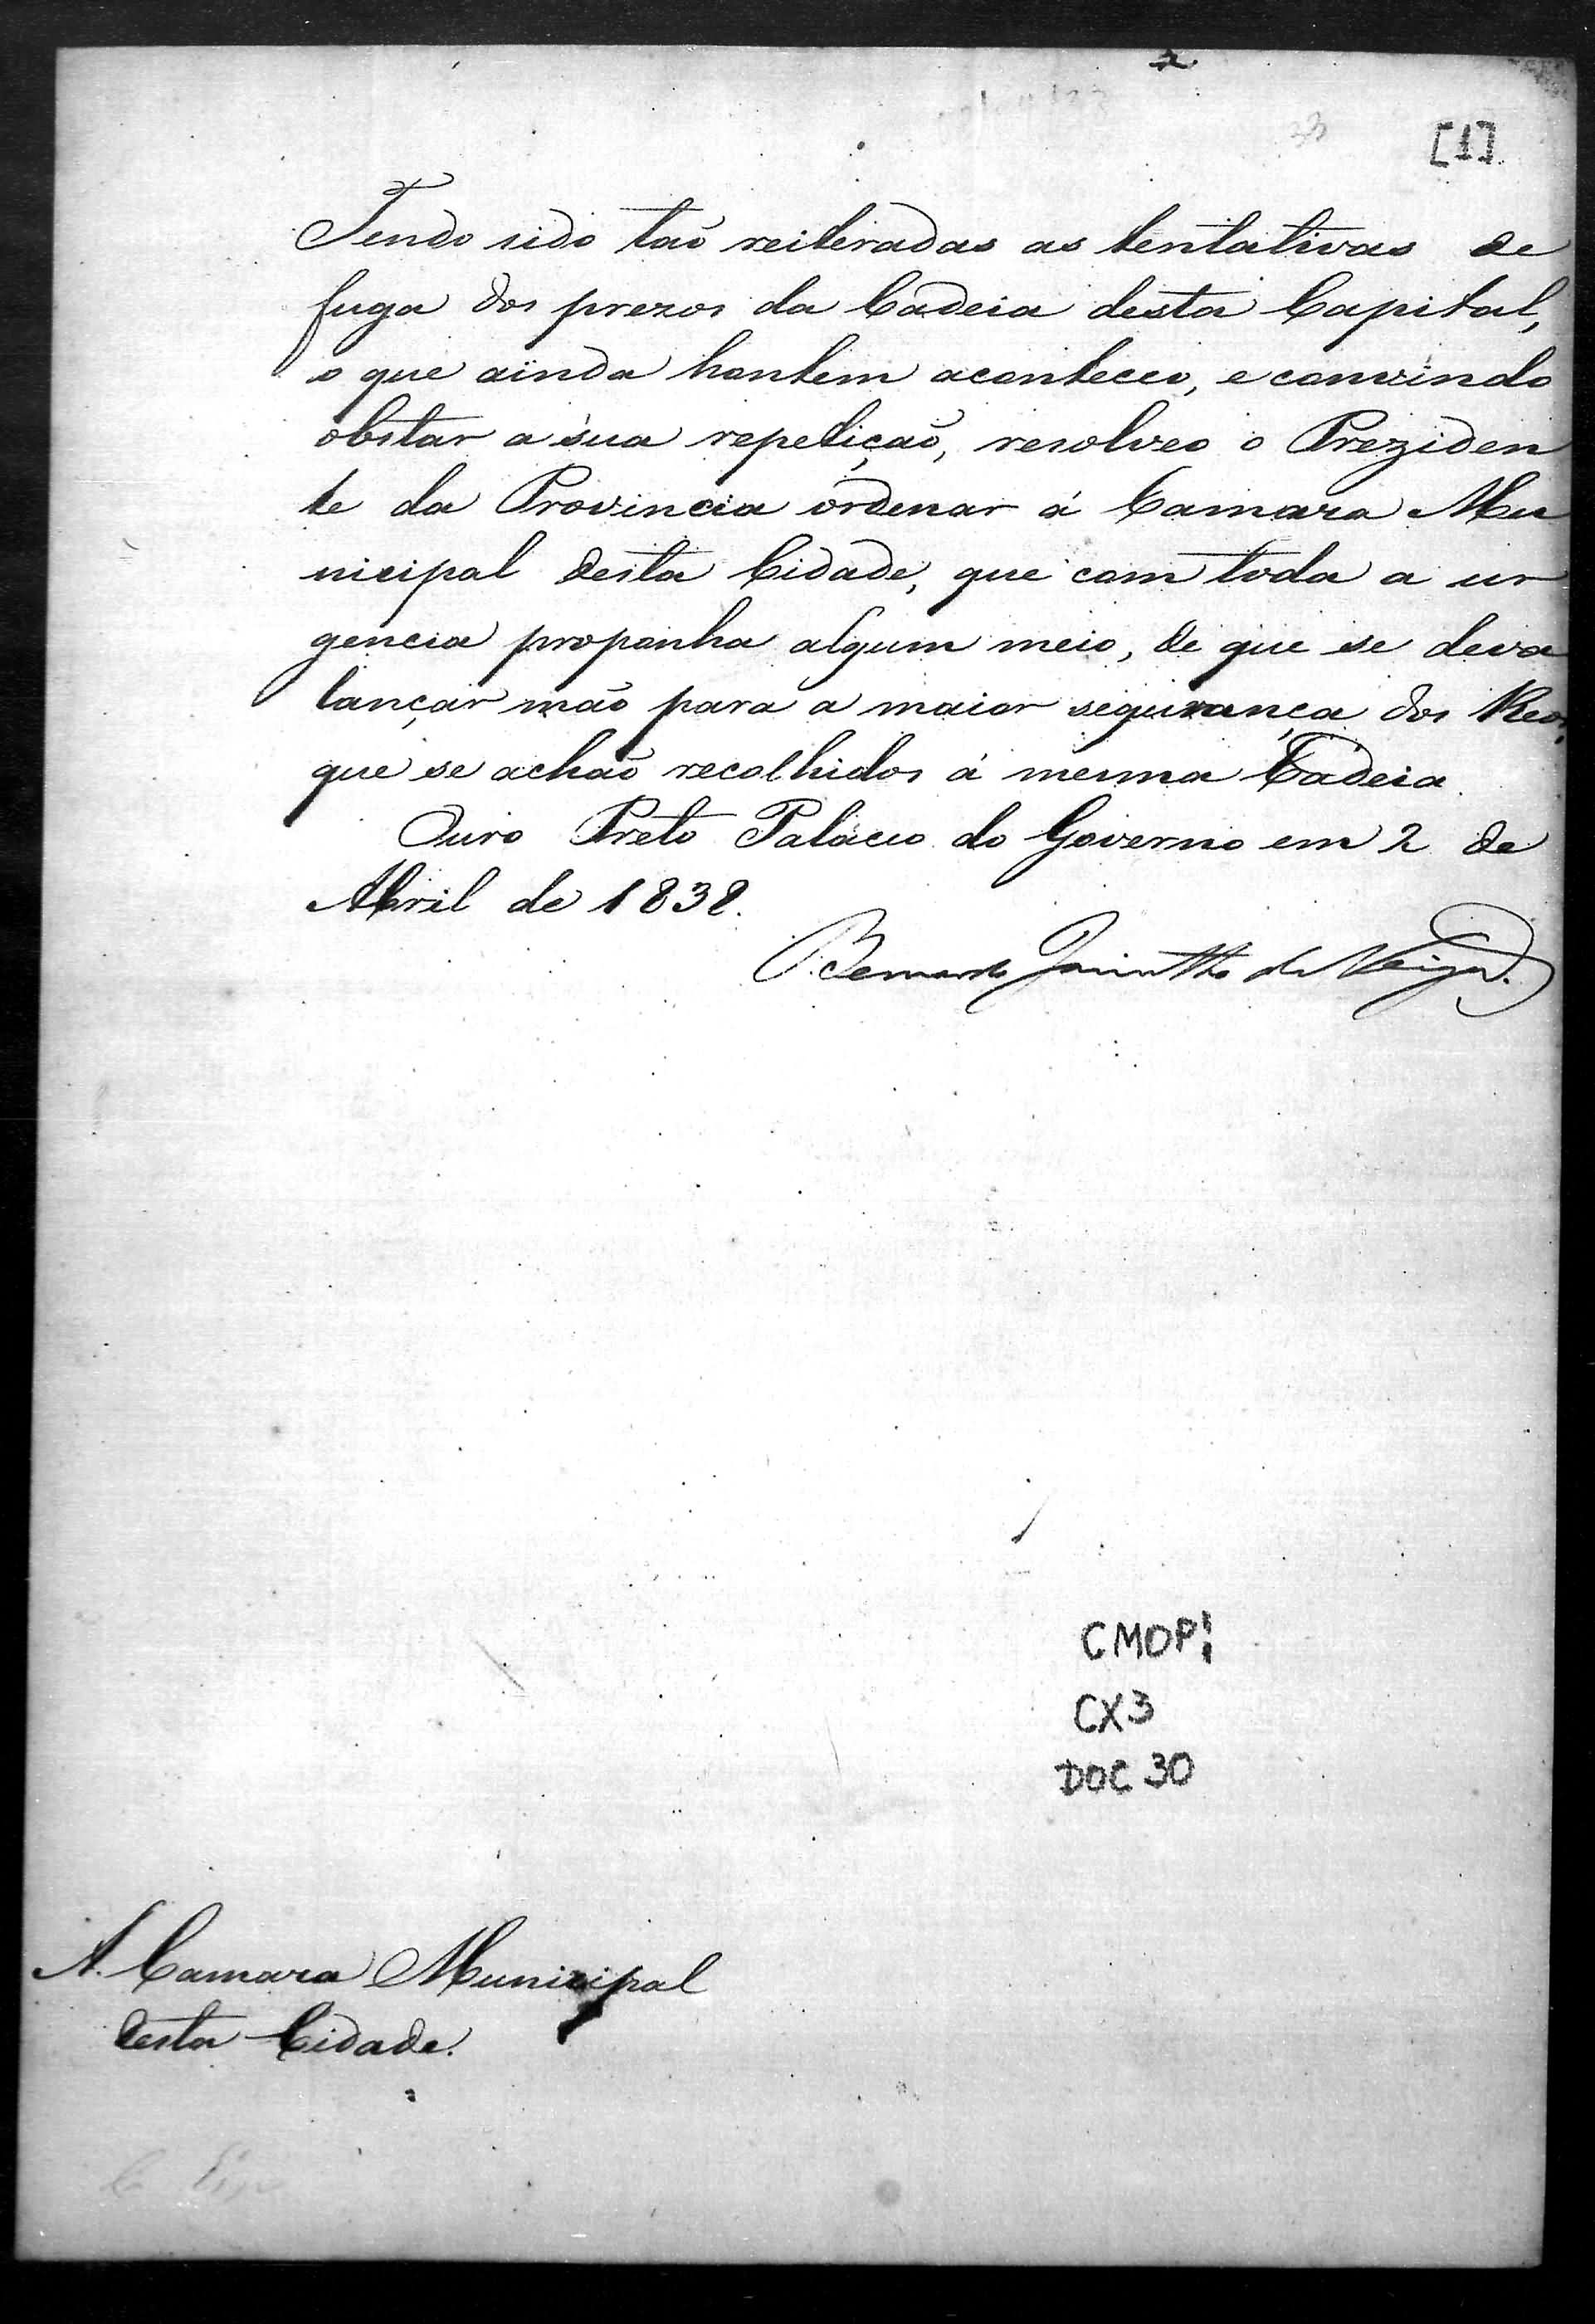 [1]
Tendo sido taõ reiteradas as tentativas de
fuga dos prezos da Cadeia desta Capital,
o que ainda hontem aconteceo, e convindo
obstar a sua repetiçaõ, resolveo o Preziden
te da Provincia ordenar á Camara Mu
nicipal desta Cidade, que com toda a ur
gencia proponha algum meio, de que se deva
lançar maõ para a maior segurança dos Reos,
que se achaõ recolhidos á mesma Cadeia.
Ouro Preto Palacio do Governo em 2 de
Abril de 1838.
Bernardo Jacintho da Veiga.
CMOP!
CX3
DOC 30
A. Camara Municipal
desta Cidade.